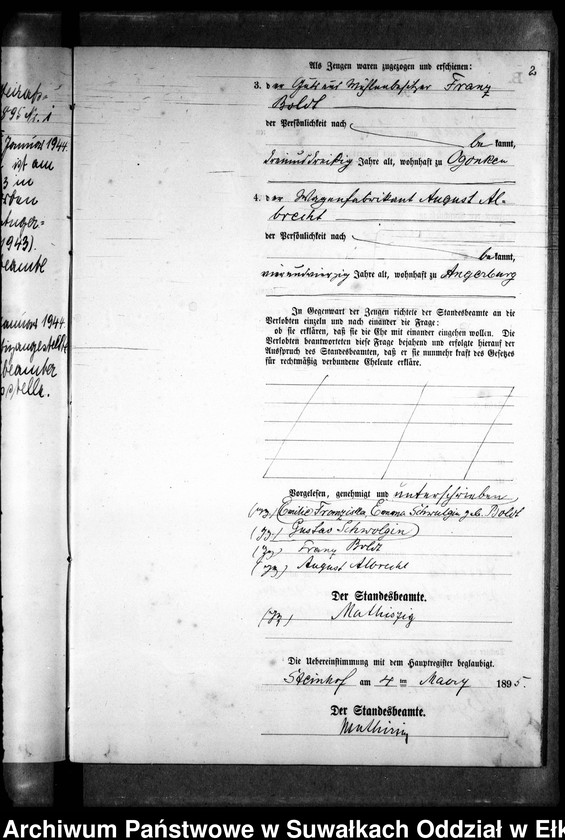 2
Als Zeugen waren zugezogen und erschienen:
3. der Guts und Mühlenbesitzer Franz
Boldt
der Persönlichkeit nach
be kannt,
dreiunddreißig Jahre alt, wohnhaft zu Ogonken
4. der Wagenfabrikant August Al-
brecht
der Persönlichkeit nach
be kannt,
vierundvierzig Jahre alt, wohnhaft zu Angerburg
In Gegenwart der Zeugen richtete der Standesbeamte an die
Verlobten einzeln und nach einander die Frage:
ob sie erklären, daß sie die Ehe mit einander eingehen wollen. Die
Verlobten beantworteten diese Frage bejahend und erfolgte hierauf der
Ausspruch des Standesbeamten, daß er sie nunmehr kraft des Gesetzes
für rechtmäßig verbundene Eheleute erkläre.
Vorgelesen, genehmigt und unterschrieben
(gz) Emilie Franziska, Emma Schwolgin geb. Boldt
(gz) Gustav Schwolgin
(gz) Franz Boldt
(gz) August Albrecht
Der Standesbeamte.
(gz) Mathiszig
Die Uebereinstimmung mit dem Hauptregister beglaubigt.
Steinhof am 4 ten 1895.
Der Standesbeamte.
Januar 1944
ist am
3 in
1943).
Januar 1944
Archiwum Państwowe w Suwałkach Oddział w Ełk